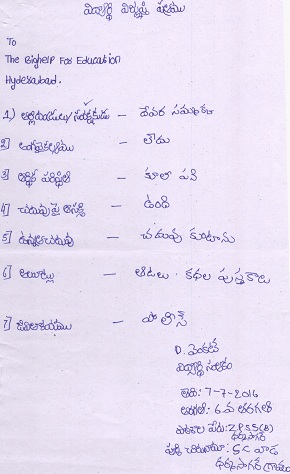 విద్యార్థి విజ్ఞప్తి పత్రము
To
The Bighelp For Education
Hyderabad.
1) తల్లిదండ్రులు/సంరక్షకుడు – దేవర సమ్మక్క
2] అంగవైకల్యము – లేదు
3] ఆర్థిక పరిస్థితి – కూలి పని
4] చదువుపై ఆసక్తి – ఉంది
5] ఉన్నతచదువు – చదువు కుంటాను
6] అలవాట్లు – ఆటలు. కథల పుస్తకాలు
7] జీవితాశయము – పోలీస్
D. వెంకటేష్
విద్యార్థి సంతకం
తేది: 7-7-2016
తరగతి: 6 వ తరగతి
పాఠశాల పేరు: Z.P.S.S(B)
ధర్మసాగర్
పూర్తి చిరునామా: SC వాడ
ధర్మసాగర్ గ్రామం